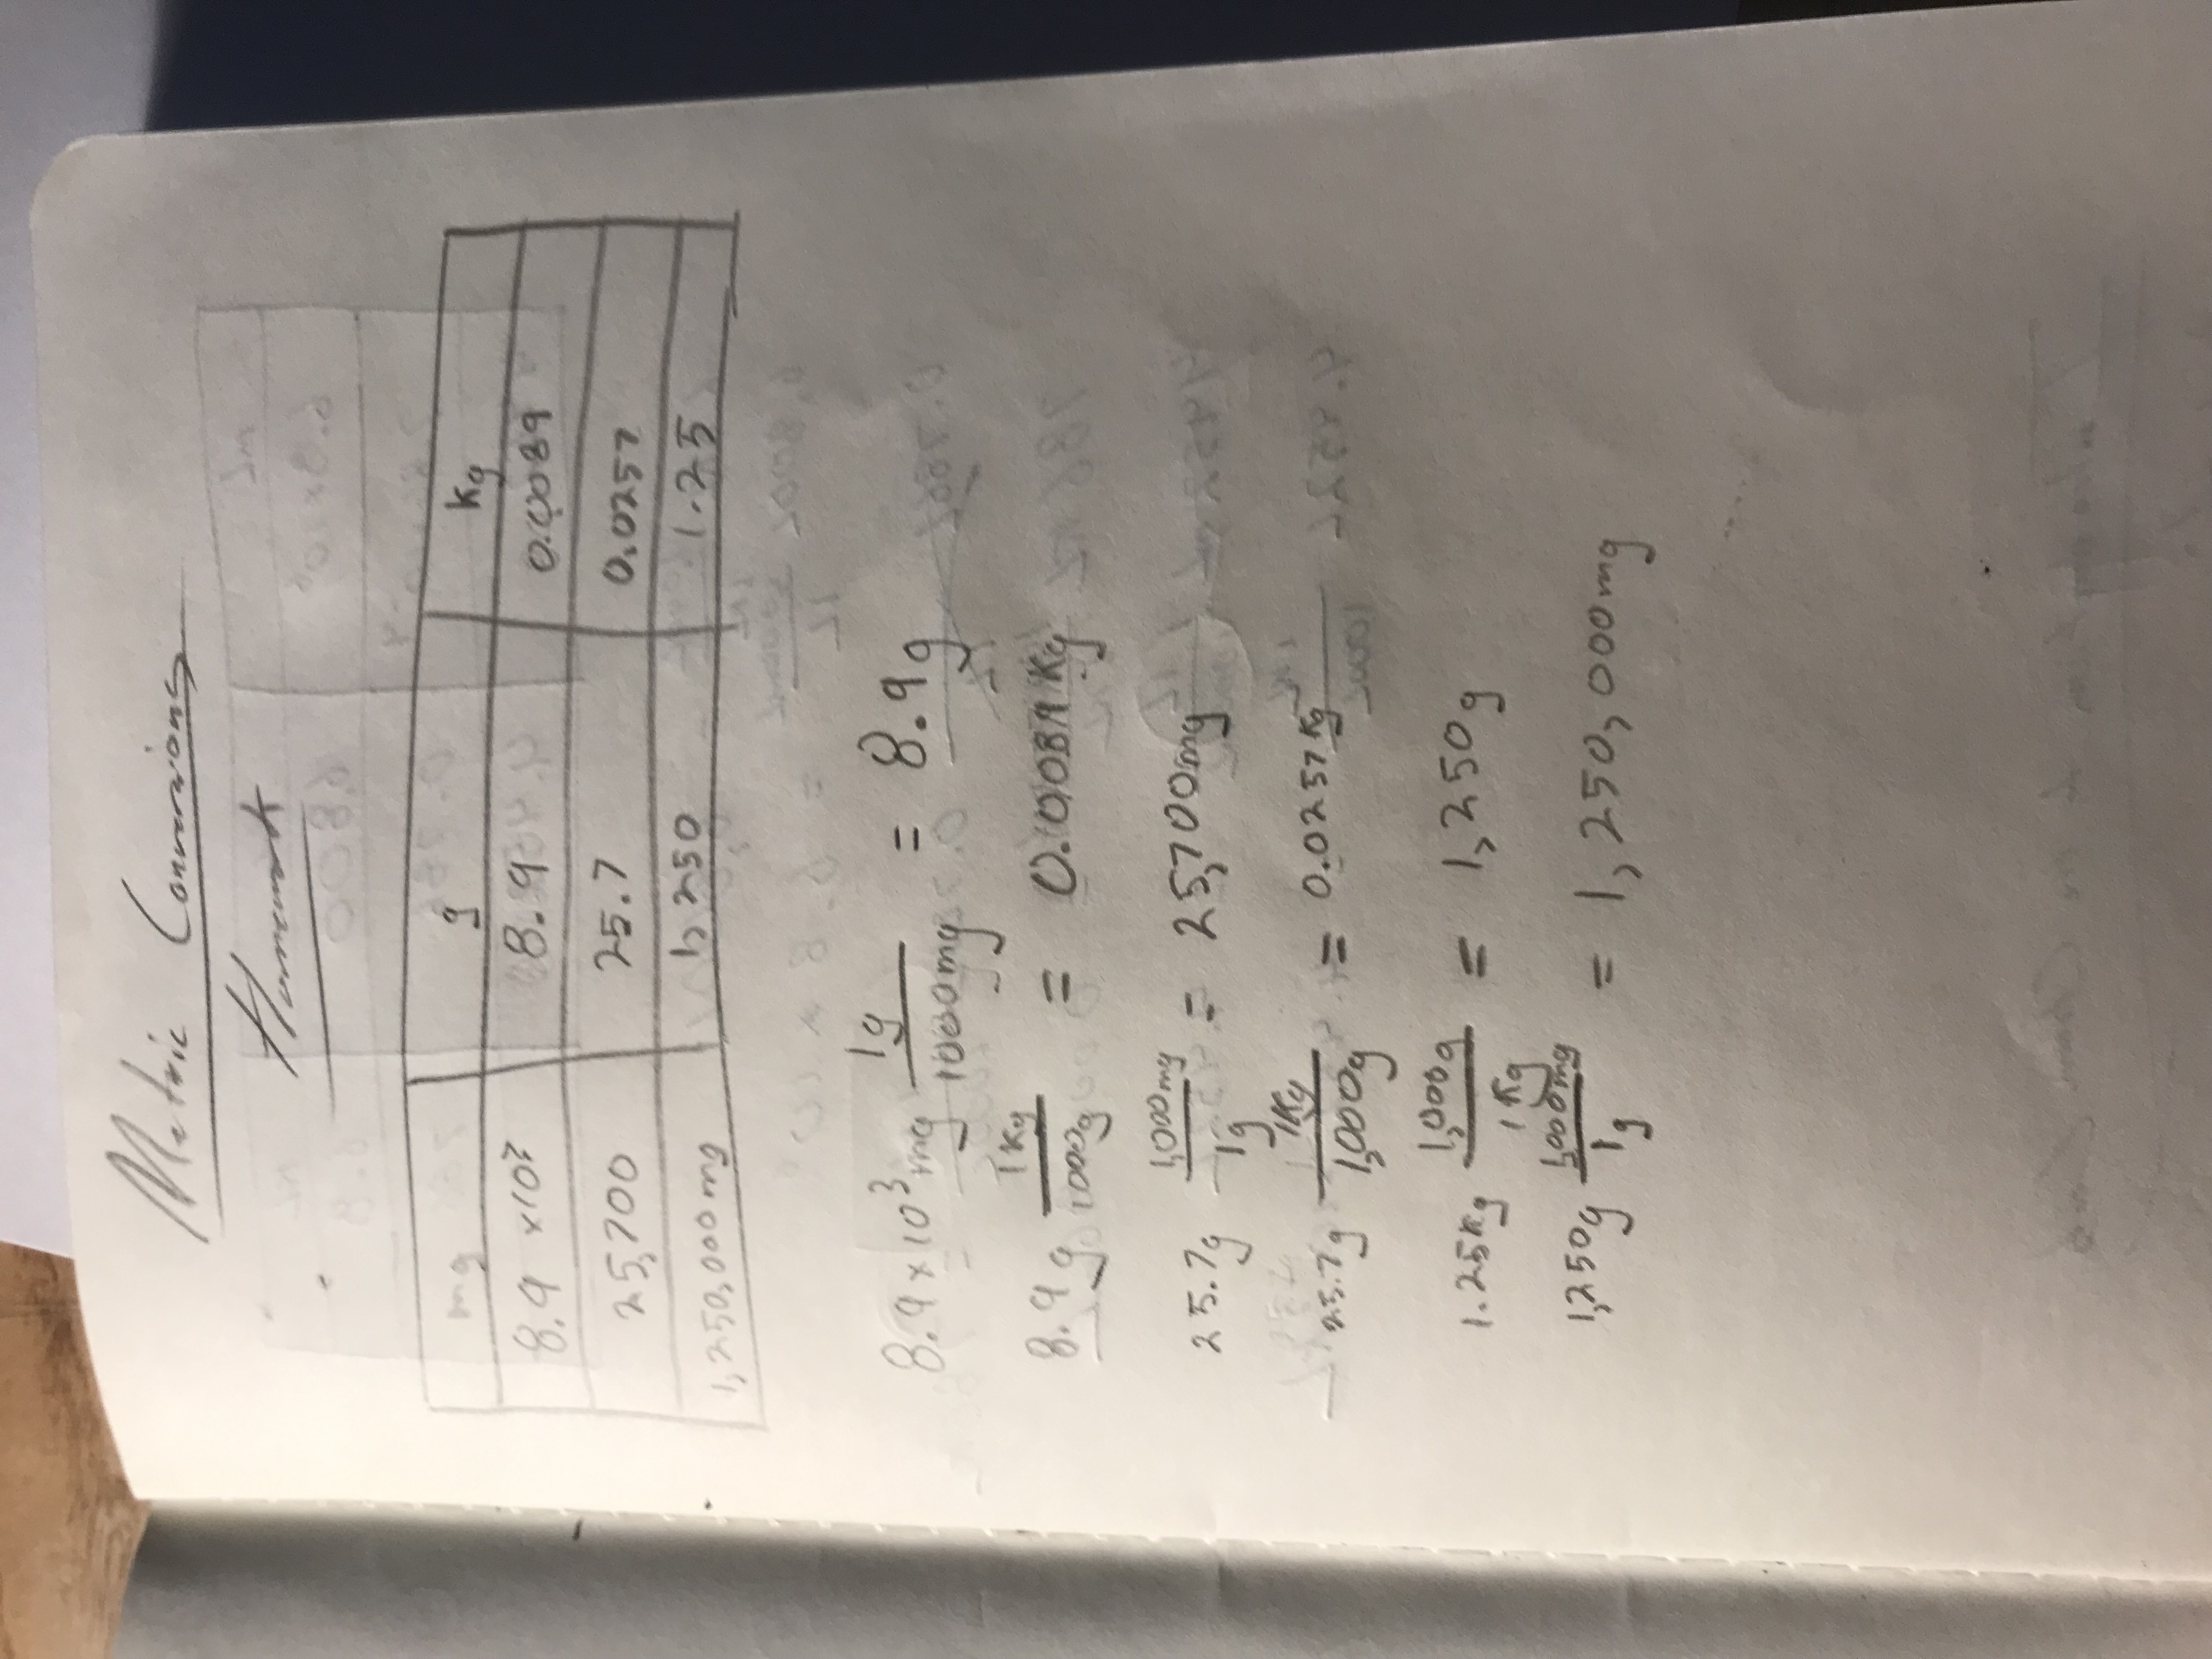 Metric Conversions
Homework
mg g kg
8.9 ×10³ 8.9 0.0089
25,700 25.7 0.0257
1,250,000mg 1,250 1.25
8.9×10³mg 1g/1000mg = 8.9g
8.9g 1Kg/1000g = 0.0089 Kg
25.7g 1,000mg/1g = 25,700mg
25.7g 1Kg/1,000g = 0.0257 Kg
1.25Kg 1,000g/1Kg = 1,250g
1,250g 1,000mg/1g = 1,250,000mg